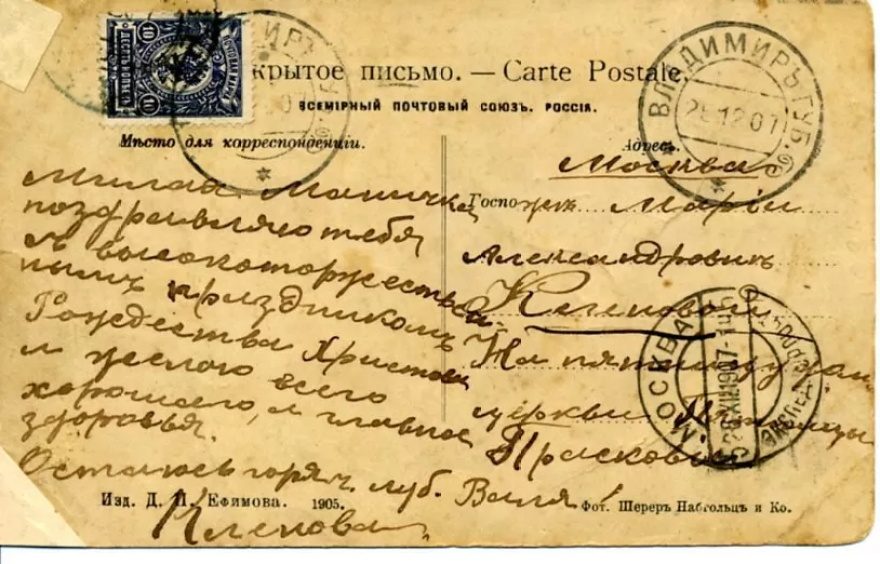 крытое письмо. — Carte Postale.
ВСЕМІРНЫЙ ПОЧТОВЫЙ СОЮЗЪ. РОССІЯ.
ВЛАДИМИРЪ ГУБ.
25 12 07
10
ДЕСЯТЬ КОПѢЕКЪ
Мѣсто для корреспонденціи.
Милая Маничка
поздравляю тебя
съ высокоторжествен-
нымъ праздникомъ
Рождества Христова
и желаю всего
хорошаго, и главное
здоровья.
Остаюсь горяч. люб. Валя
Клепова
Адресъ.
Москва
Госпожѣ Маріи
Александровнѣ
Клеповой
На пятницкую
церкви
Прасковіи
МОСКВА
Изд. Д. П. Ефимова. 1905.
Фот. Шереръ Набгольцъ и Ко.